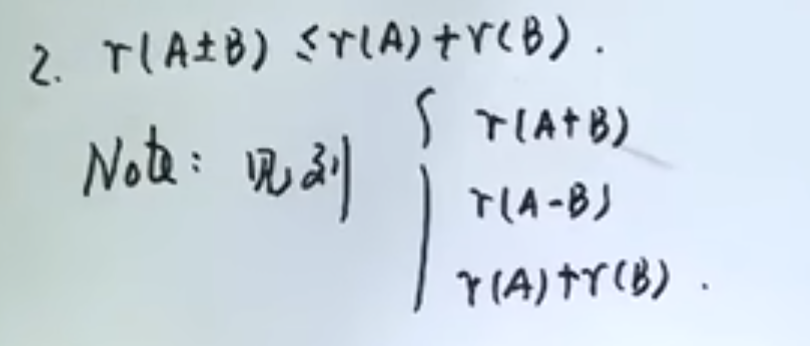 2. r(A±B) ≤ r(A)+r(B).
Note: 见到 { r(A+B)
r(A-B)
r(A)+r(B).